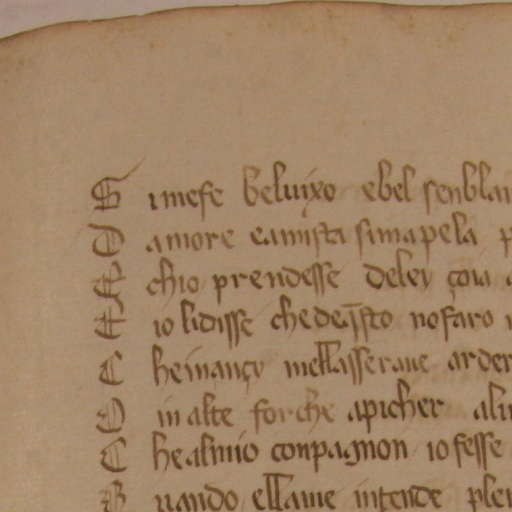 S imefe beluixo ebel senblan
D amore eamista simapela p
E chio prendesse deley çoia
E io lidisse chedeq̄sto nofaro
C heinançy mellasseraue arder
D in alte forche apicher alin
C healmio conpagnon iofesse
Q uando ellame intende plen